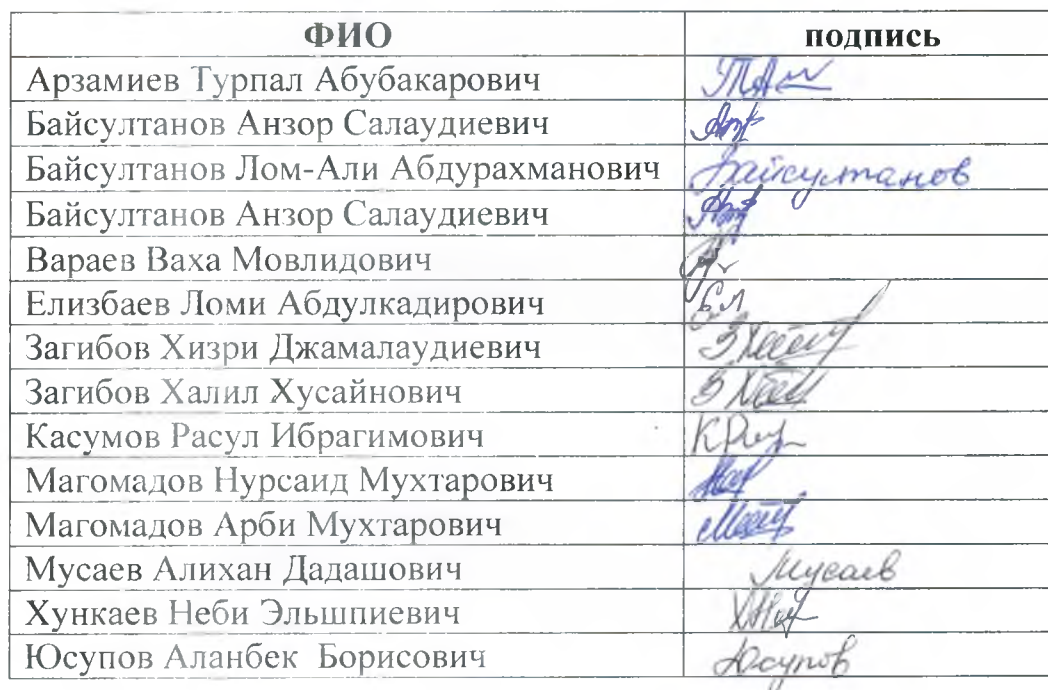 ФИО подпись
Арзамиев Турпал Абубакарович
Байсултанов Анзор Салаудиевич
Байсултанов Лом-Али Абдурахманович Байсултанов
Байсултанов Анзор Салаудиевич
Вараев Ваха Мовлидович
Елизбаев Ломи Абдулкадирович
Загибов Хизри Джамалаудиевич
Загибов Халил Хусайнович
Касумов Расул Ибрагимович
Магомадов Нурсаид Мухтарович
Магомадов Арби Мухтарович
Мусаев Алихан Дадашович Мусаев
Хункаев Неби Эльшпиевич
Юсупов Аланбек Борисович Юсупов